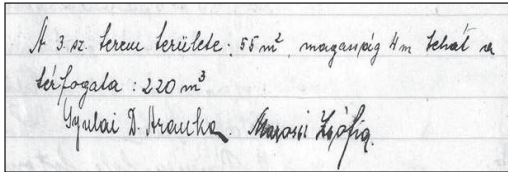 A 3. sz. terem területe: 55 m², magasság 4 m tehát a
térfogata : 220 m³
Gyulai D. Aranka. Marosi Zsófia.